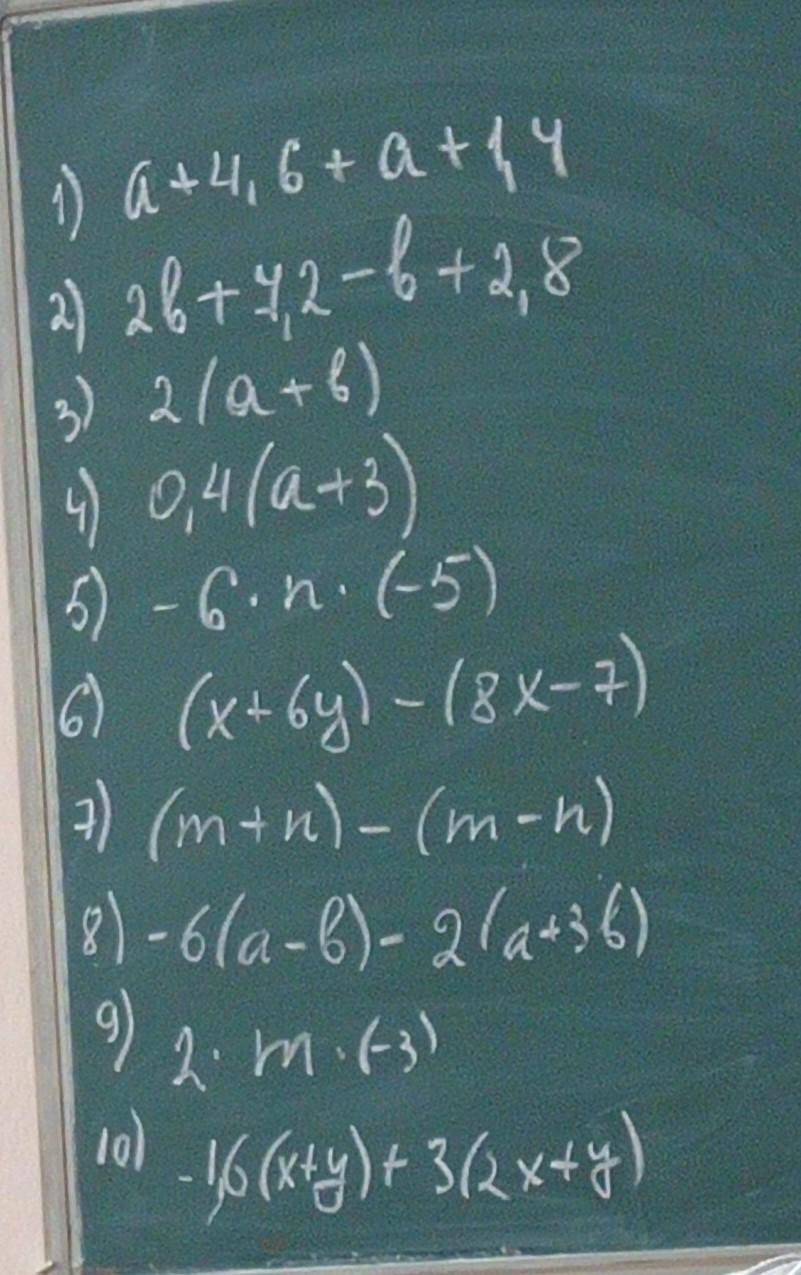 1) a+4,6+a+1,4
2) 2b+7,2-b+2,8
3) 2(a+b)
4) 0,4(a+3)
5) -6·n·(-5)
6) (x+6y)-(8x-7)
7) (m+n)-(m-n)
8) -6(a-b)-2(a+3b)
9) 2·m·(-3)
10) -1,6(x+y)+3(2x+y)